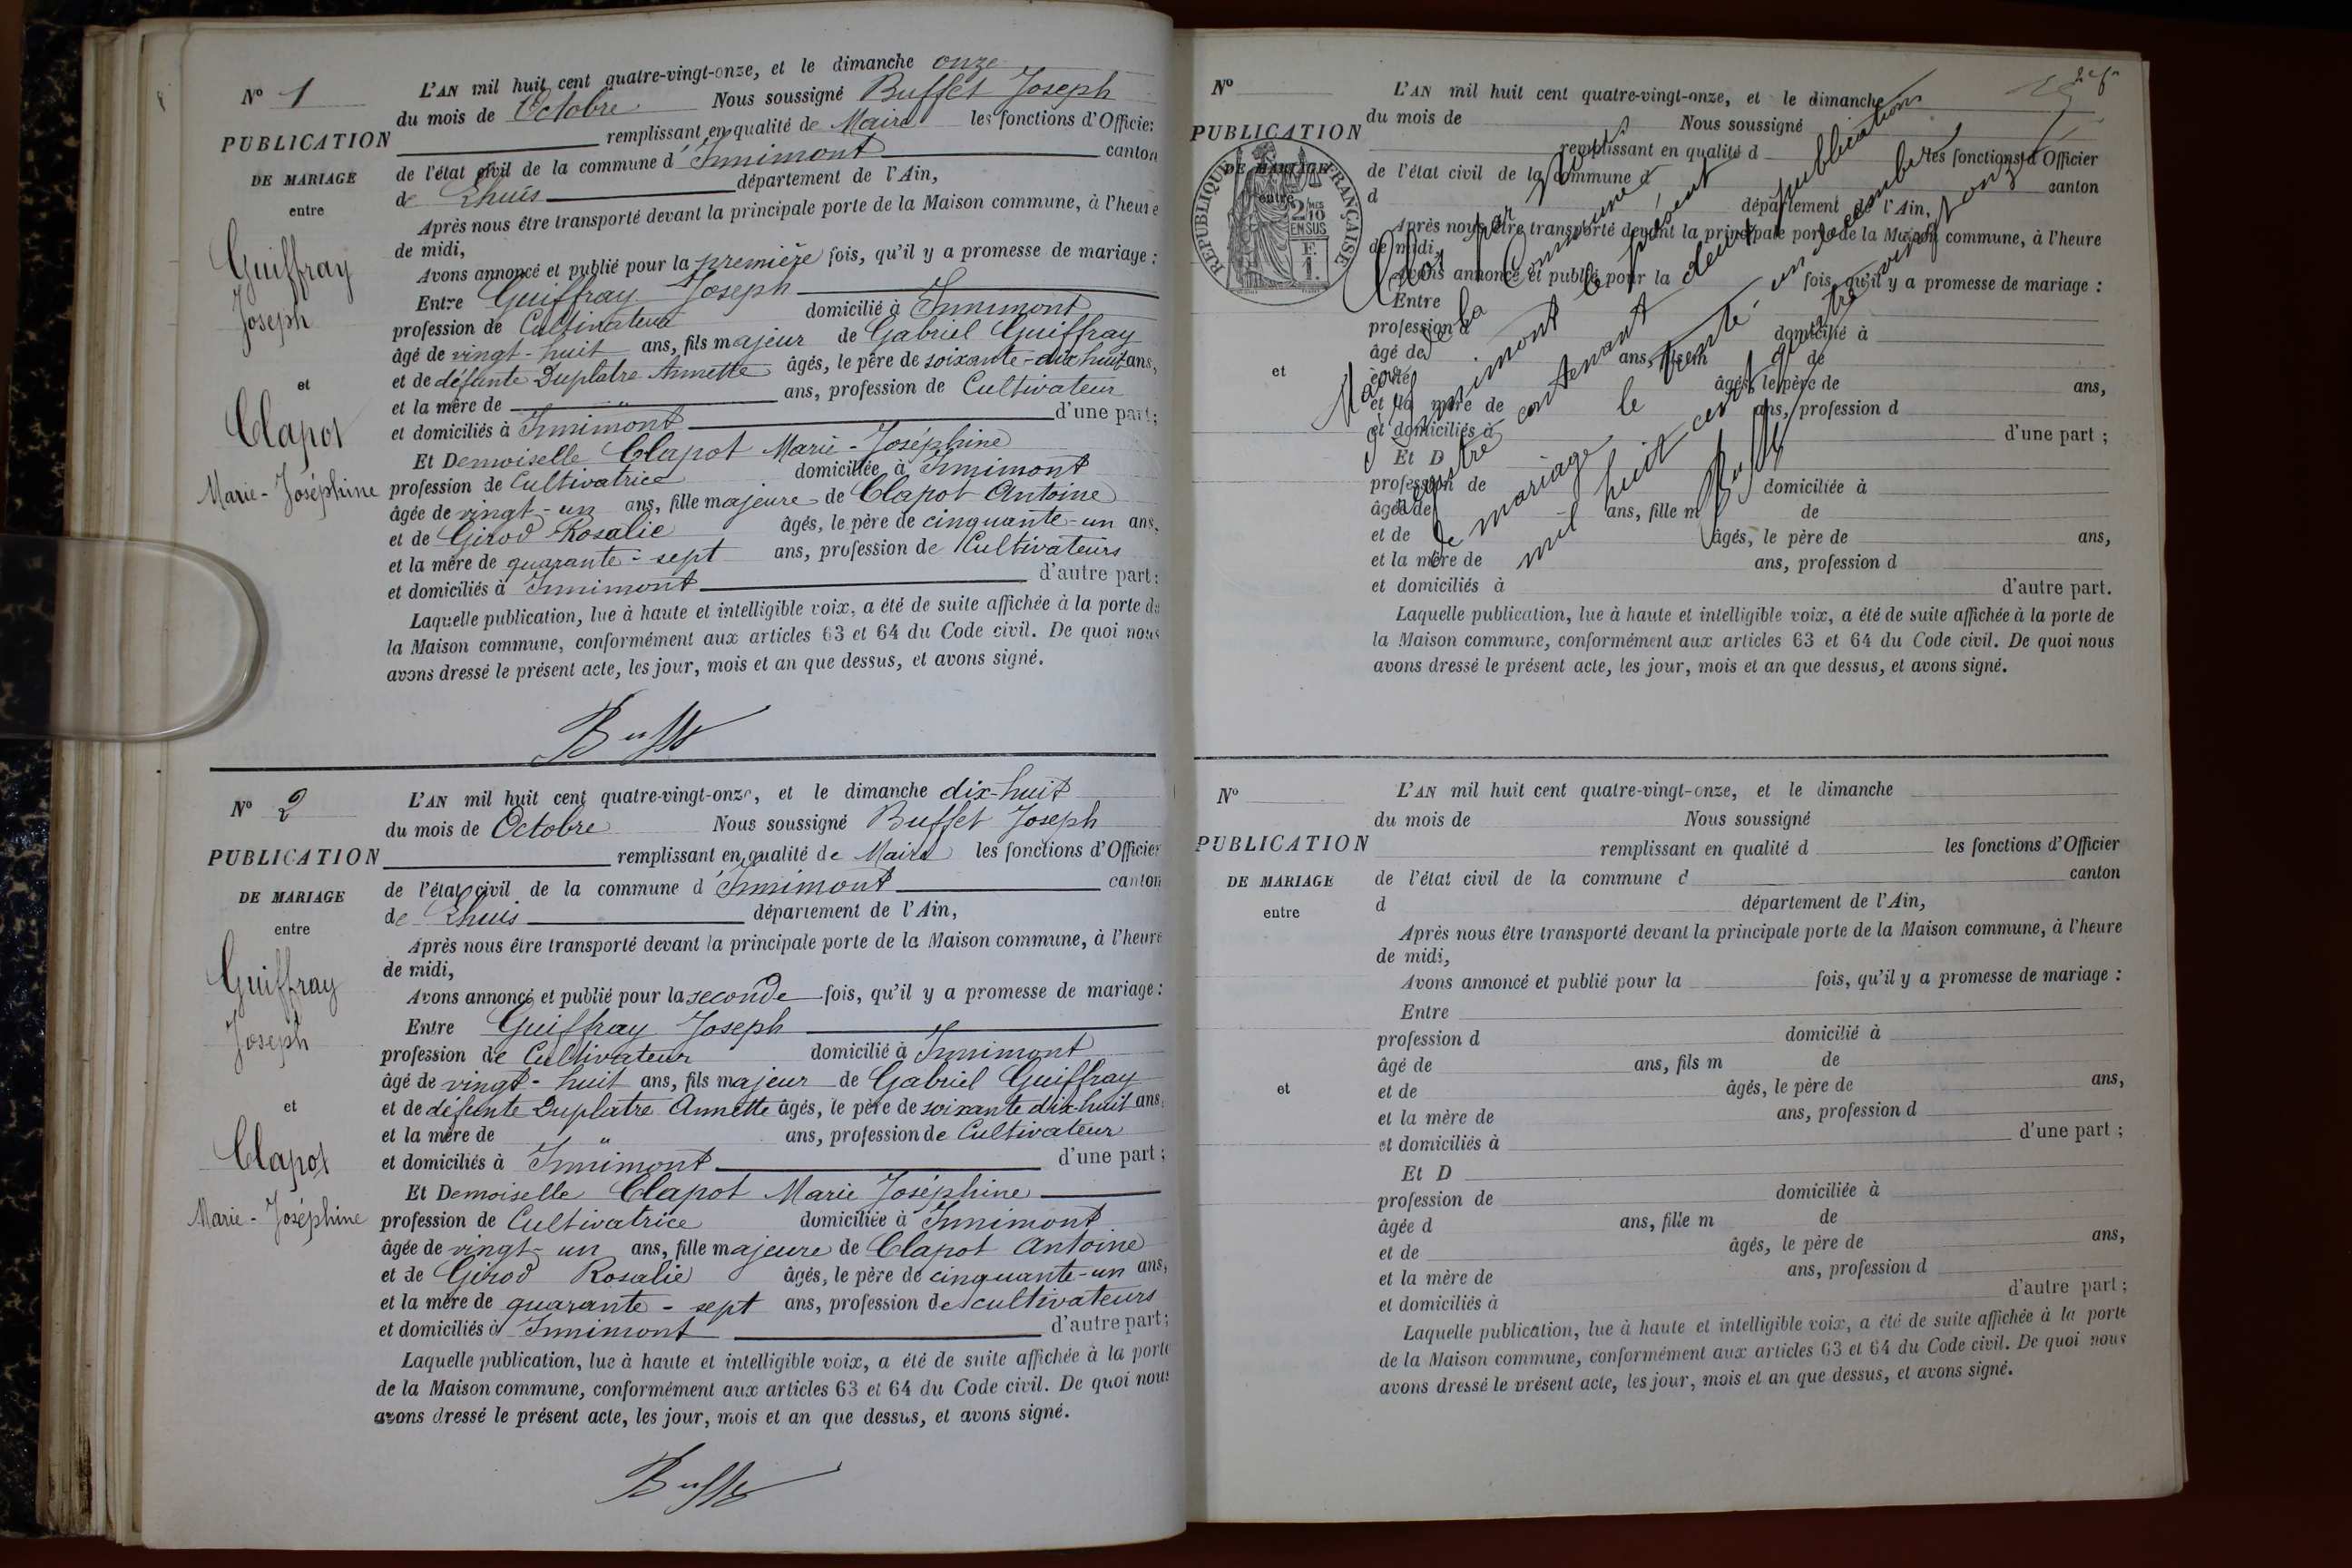 Nº 1
PUBLICATION
DE MARIAGE
entre
Guiffray
Joseph
et
Clapot
Marie-Joséphine
L'AN mil huit cent quatre-vingt-onze, et le dimanche onze
du mois de Octobre Nous soussigné Buffet Joseph
remplissant en qualité de Maire les fonctions d'Officier
de l'état civil de la commune d'Innimont canton
de Lhuis département de l'Ain,
Après nous être transporté devant la principale porte de la Maison commune, à l'heure
de midi,
Avons annoncé et publié pour la première fois, qu'il y a promesse de mariage :
Entre Guiffray Joseph
profession de Cultivateur domicilié à Innimont
âgé de vingt-huit ans, fils majeur de Gabriel Guiffray
et de défunte Duplatre Annette âgés, le père de soixante-dix huit ans,
et la mère de " ans, profession de Cultivateur
et domiciliés à Innimont d'une part ;
Et Demoiselle Clapot Marie-Joséphine
profession de Cultivatrice domiciliée à Innimont
âgée de vingt-un ans, fille majeure de Clapot Antoine
et de Girod Rosalie âgés, le père de cinquante-un ans,
et la mère de quarante-sept ans, profession de Cultivateurs
et domiciliés à Innimont d'autre part ;
Laquelle publication, lue à haute et intelligible voix, a été de suite affichée à la porte de
la Maison commune, conformément aux articles 63 et 64 du Code civil. De quoi nous
avons dressé le présent acte, les jour, mois et an que dessus, et avons signé.
Buffet
Nº 2
PUBLICATION
DE MARIAGE
entre
Guiffray
Joseph
et
Clapot
Marie-Joséphine
L'AN mil huit cent quatre-vingt-onze, et le dimanche dix-huit
du mois de Octobre Nous soussigné Buffet Joseph
remplissant en qualité de Maire les fonctions d'Officier
de l'état civil de la commune d'Innimont canton
de Lhuis département de l'Ain,
Après nous être transporté devant la principale porte de la Maison commune, à l'heure
de midi,
Avons annoncé et publié pour la seconde fois, qu'il y a promesse de mariage :
Entre Guiffray Joseph
profession de Cultivateur domicilié à Innimont
âgé de vingt-huit ans, fils majeur de Gabriel Guiffray
et de défunte Duplatre Annette âgés, le père de soixante dix-huit ans,
et la mère de " ans, profession de Cultivateur
et domiciliés à Innimont d'une part ;
Et Demoiselle Clapot Marie Joséphine
profession de Cultivatrice domiciliée à Innimont
âgée de vingt-un ans, fille majeure de Clapot Antoine
et de Girod Rosalie âgés, le père de cinquante-un ans,
et la mère de quarante-sept ans, profession de cultivateurs
et domiciliés à Innimont d'autre part ;
Laquelle publication, lue à haute et intelligible voix, a été de suite affichée à la porte
de la Maison commune, conformément aux articles 63 et 64 du Code civil. De quoi nous
avons dressé le présent acte, les jour, mois et an que dessus, et avons signé.
Buffet
Nº
PUBLICATION
DE MARIAGE
entre
et
RÉPUBLIQUE FRANÇAISE
2/10
EN SUS
L'AN mil huit cent quatre-vingt-onze, et le dimanche
du mois de Nous soussigné
remplissant en qualité d les fonctions d'Officier
de l'état civil de la commune d canton
d département de l'Ain,
Après nous être transporté devant la principale porte de la Maison commune, à l'heure
de midi,
Avons annoncé et publié pour la fois, qu'il y a promesse de mariage :
Entre
profession d domicilié à
âgé de ans, fils m de
et de âgés, le père de ans,
et la mère de ans, profession d
et domiciliés à d'une part ;
Et D
profession de domiciliée à
âgée de ans, fille m de
et de âgés, le père de ans,
et la mère de ans, profession d
et domiciliés à d'autre part.
Laquelle publication, lue à haute et intelligible voix, a été de suite affichée à la porte de
la Maison commune, conformément aux articles 63 et 64 du Code civil. De quoi nous
avons dressé le présent acte, les jour, mois et an que dessus, et avons signé.
Clos par nous
Maire de la Commune
d'Innimont le présent
registre contenant deux publications
de mariage le trente-un décembre
mil huit cent quatre vingt onze
Buffet
Nº
PUBLICATION
DE MARIAGE
entre
et
L'AN mil huit cent quatre-vingt-onze, et le dimanche
du mois de Nous soussigné
remplissant en qualité d les fonctions d'Officier
de l'état civil de la commune d canton
d département de l'Ain,
Après nous être transporté devant la principale porte de la Maison commune, à l'heure
de midi,
Avons annoncé et publié pour la fois, qu'il y a promesse de mariage :
Entre
profession d domicilié à
âgé de ans, fils m de
et de âgés, le père de ans,
et la mère de ans, profession d
et domiciliés à d'une part ;
Et D
profession de domiciliée à
âgée d ans, fille m de
et de âgés, le père de ans,
et la mère de ans, profession d
et domiciliés à d'autre part ;
Laquelle publication, lue à haute et intelligible voix, a été de suite affichée à la porte
de la Maison commune, conformément aux articles 63 et 64 du Code civil. De quoi nous
avons dressé le présent acte, les jour, mois et an que dessus, et avons signé.